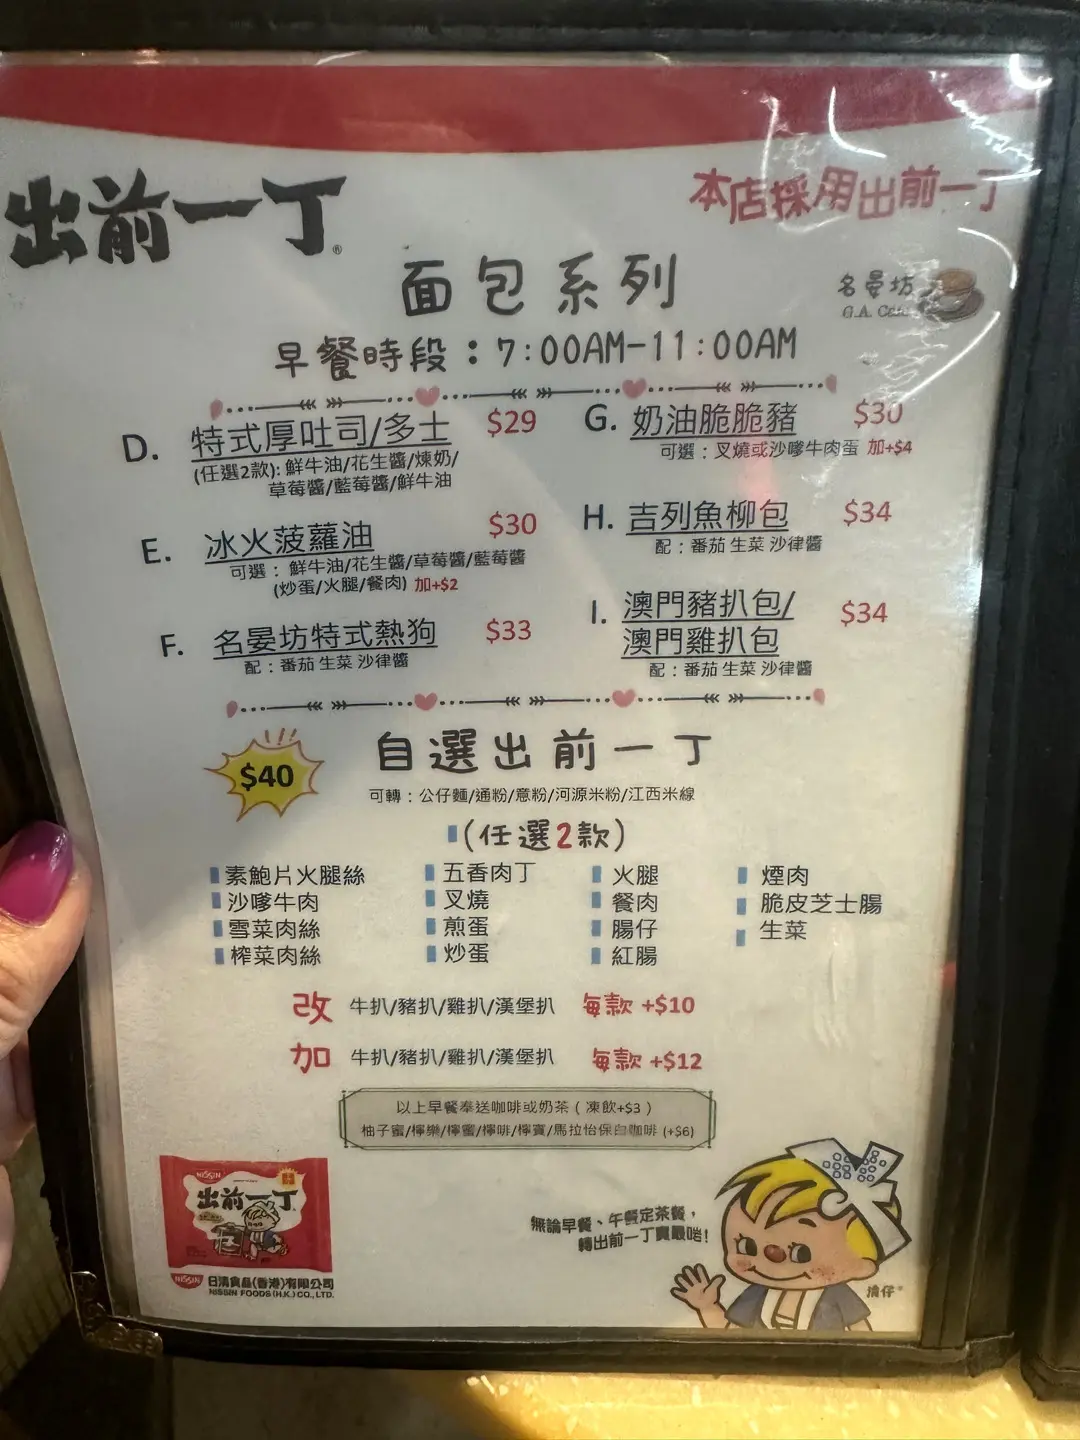 出前一丁®
本店採用出前一丁
面包系列
名晏坊
G.A. Café
早餐時段：7:00AM-11:00AM
D. 特式厚吐司/多士 $29
(任選2款): 鮮牛油/花生醬/煉奶/
草莓醬/藍莓醬/鮮牛油
E. 冰火菠蘿油 $30
可選： 鮮牛油/花生醬/草莓醬/藍莓醬
(炒蛋/火腿/餐肉) 加+$2
F. 名晏坊特式熱狗 $33
配：番茄 生菜 沙律醬
G. 奶油脆脆豬 $30
可選：叉燒或沙嗲牛肉蛋 加+$4
H. 吉列魚柳包 $34
配：番茄 生菜 沙律醬
I. 澳門豬扒包/
澳門雞扒包 $34
配：番茄 生菜 沙律醬
$40
自選出前一丁
可轉：公仔麵/通粉/意粉/河源米粉/江西米線
(任選2款)
素鮑片火腿絲 五香肉丁 火腿 煙肉
沙嗲牛肉 叉燒 餐肉 脆皮芝士腸
雪菜肉絲 煎蛋 腸仔 生菜
榨菜肉絲 炒蛋 紅腸
改 牛扒/豬扒/雞扒/漢堡扒 每款 +$10
加 牛扒/豬扒/雞扒/漢堡扒 每款 +$12
以上早餐奉送咖啡或奶茶（凍飲+$3）
柚子蜜/檸樂/檸蜜/檸啡/檸賓/馬拉怡保白咖啡 (+$6)
NISSIN
出前一丁
NISSIN 日清食品(香港)有限公司
NISSIN FOODS (H.K.) CO., LTD.
無論早餐、午餐定茶餐，
轉出前一丁實最啱!
清仔®